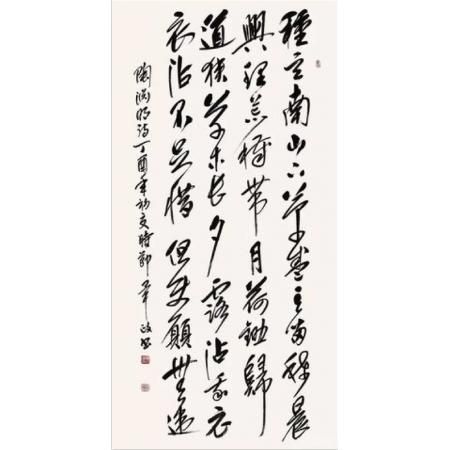 種豆南山下草盛豆苗稀晨
興理荒穢帶月荷鋤歸
道狹草木長夕露沾我衣
衣沾不足惜但使願無違
陶淵明詩丁酉年初夏時節